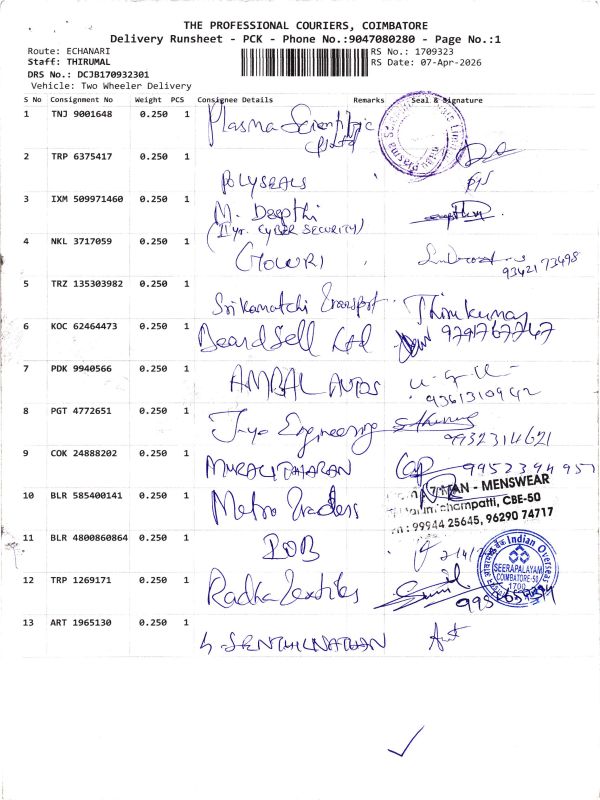 THE PROFESSIONAL COURIERS, COIMBATORE
Delivery Runsheet - PCK - Phone No.:9047080280 - Page No.:1
Route: ECHANARI
RS No.: 1709323
Staff: THIRUMAL
RS Date: 07-Apr-2026
DRS No.: DCJB170932301
Vehicle: Two Wheeler Delivery
S No Consignment No Weight PCS Consignee Details Remarks Seal & Signature
1 TNJ 9001648 0.250 1 Plasma Scientific
2 TRP 6375417 0.250 1 POLYSEALS
3 IXM 509971460 0.250 1 M. Deepthi
(II yr. CYBER SECURITY)
4 NKL 3717059 0.250 1 GOWRI
93421 73498
5 TRZ 135303982 0.250 1 Sri Kamatchi Transport Thirukumar
6 KOC 62464473 0.250 1 Beardsell Ltd
7 PDK 9940566 0.250 1 AMBAL AUTOS
9361310942
8 PGT 4772651 0.250 1 Engineering
9932314621
9 COK 24888202 0.250 1 MURALITHARAN 9952394957
10 BLR 585400141 0.250 1 Metro Traders
MAN - MENSWEAR
CBE-50
99944 25645, 96290 74717
11 BLR 4800860864 0.250 1 IOB
Indian Overseas
SEERAPALAYAM
COIMBATORE-50
12 TRP 1269171 0.250 1 Radha Textiles
13 ART 1965130 0.250 1 SENTHILNATHAN